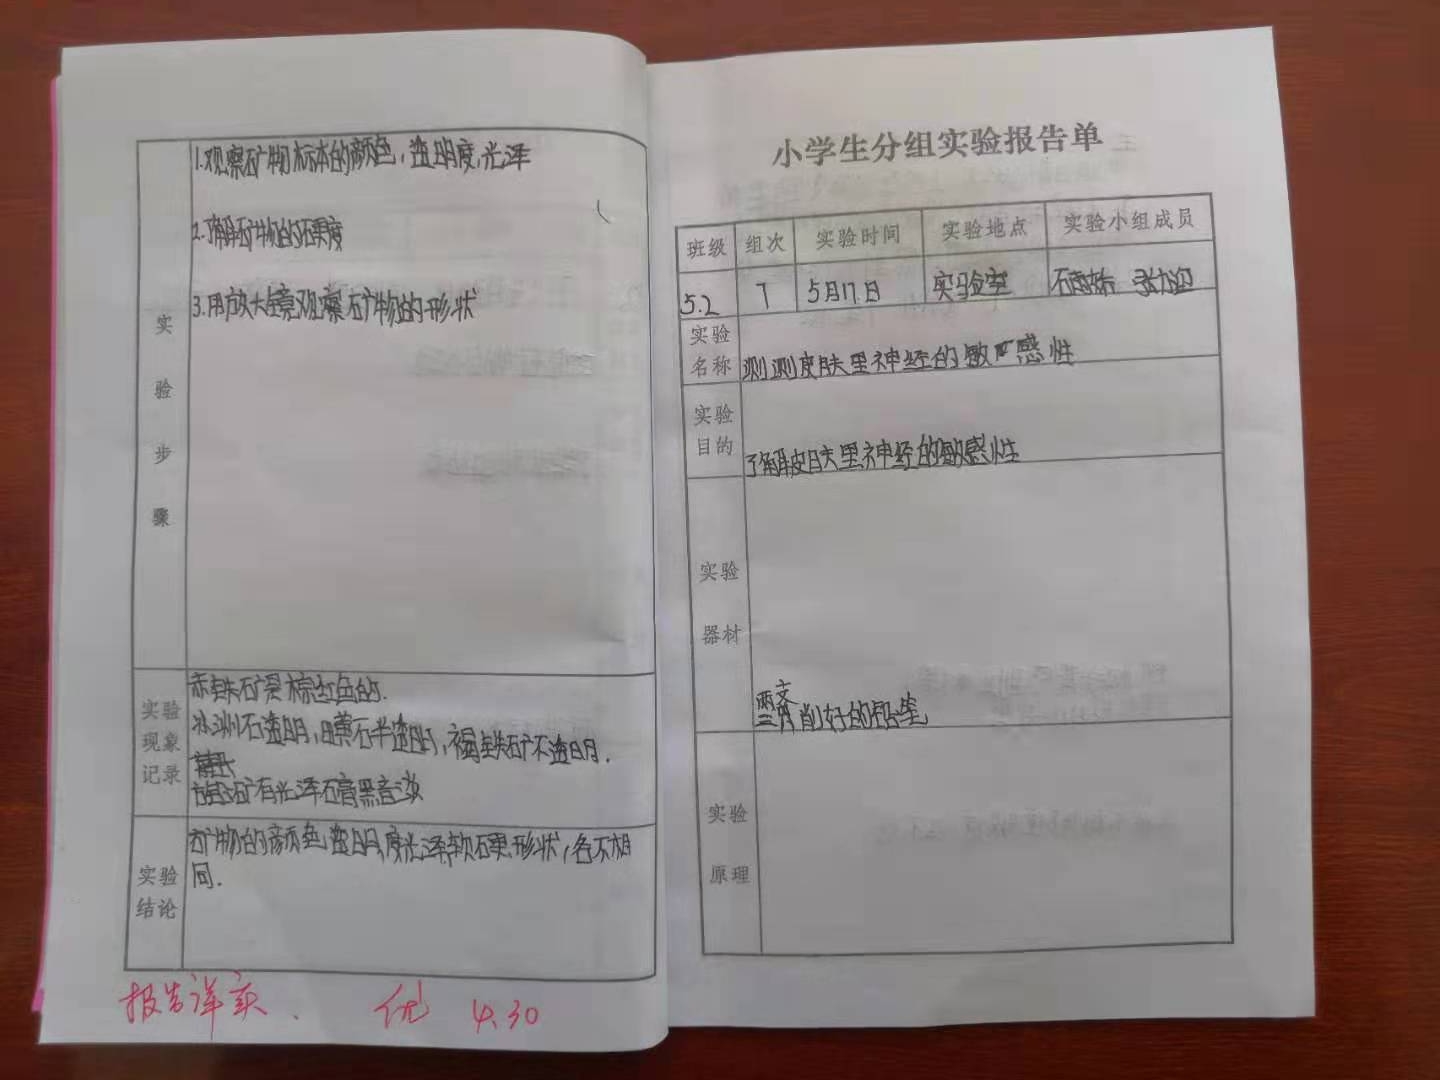 实验步骤
1.观察矿物标本的颜色,透明度,光泽
2.了解矿物的硬度
3.用放大镜观察矿物的形状
实验
现象
记录
赤铁矿是棕红色的.
冰洲石透明,萤石半透明,褐铁矿不透明.
矿有光泽石膏黑暗淡
实验
结论
矿物的颜色透明度光泽软硬形状,各不相
同.
报告详实. 优 4.30
小学生分组实验报告单
班级 组次 实验时间 实验地点 实验小组成员
5.2 7 5月17日 实验室
实验
名称
测测皮肤里神经的敏感性
实验
目的
了解皮肤里神经的敏感性
实验
器材
两支削好的铅笔
实验
原理